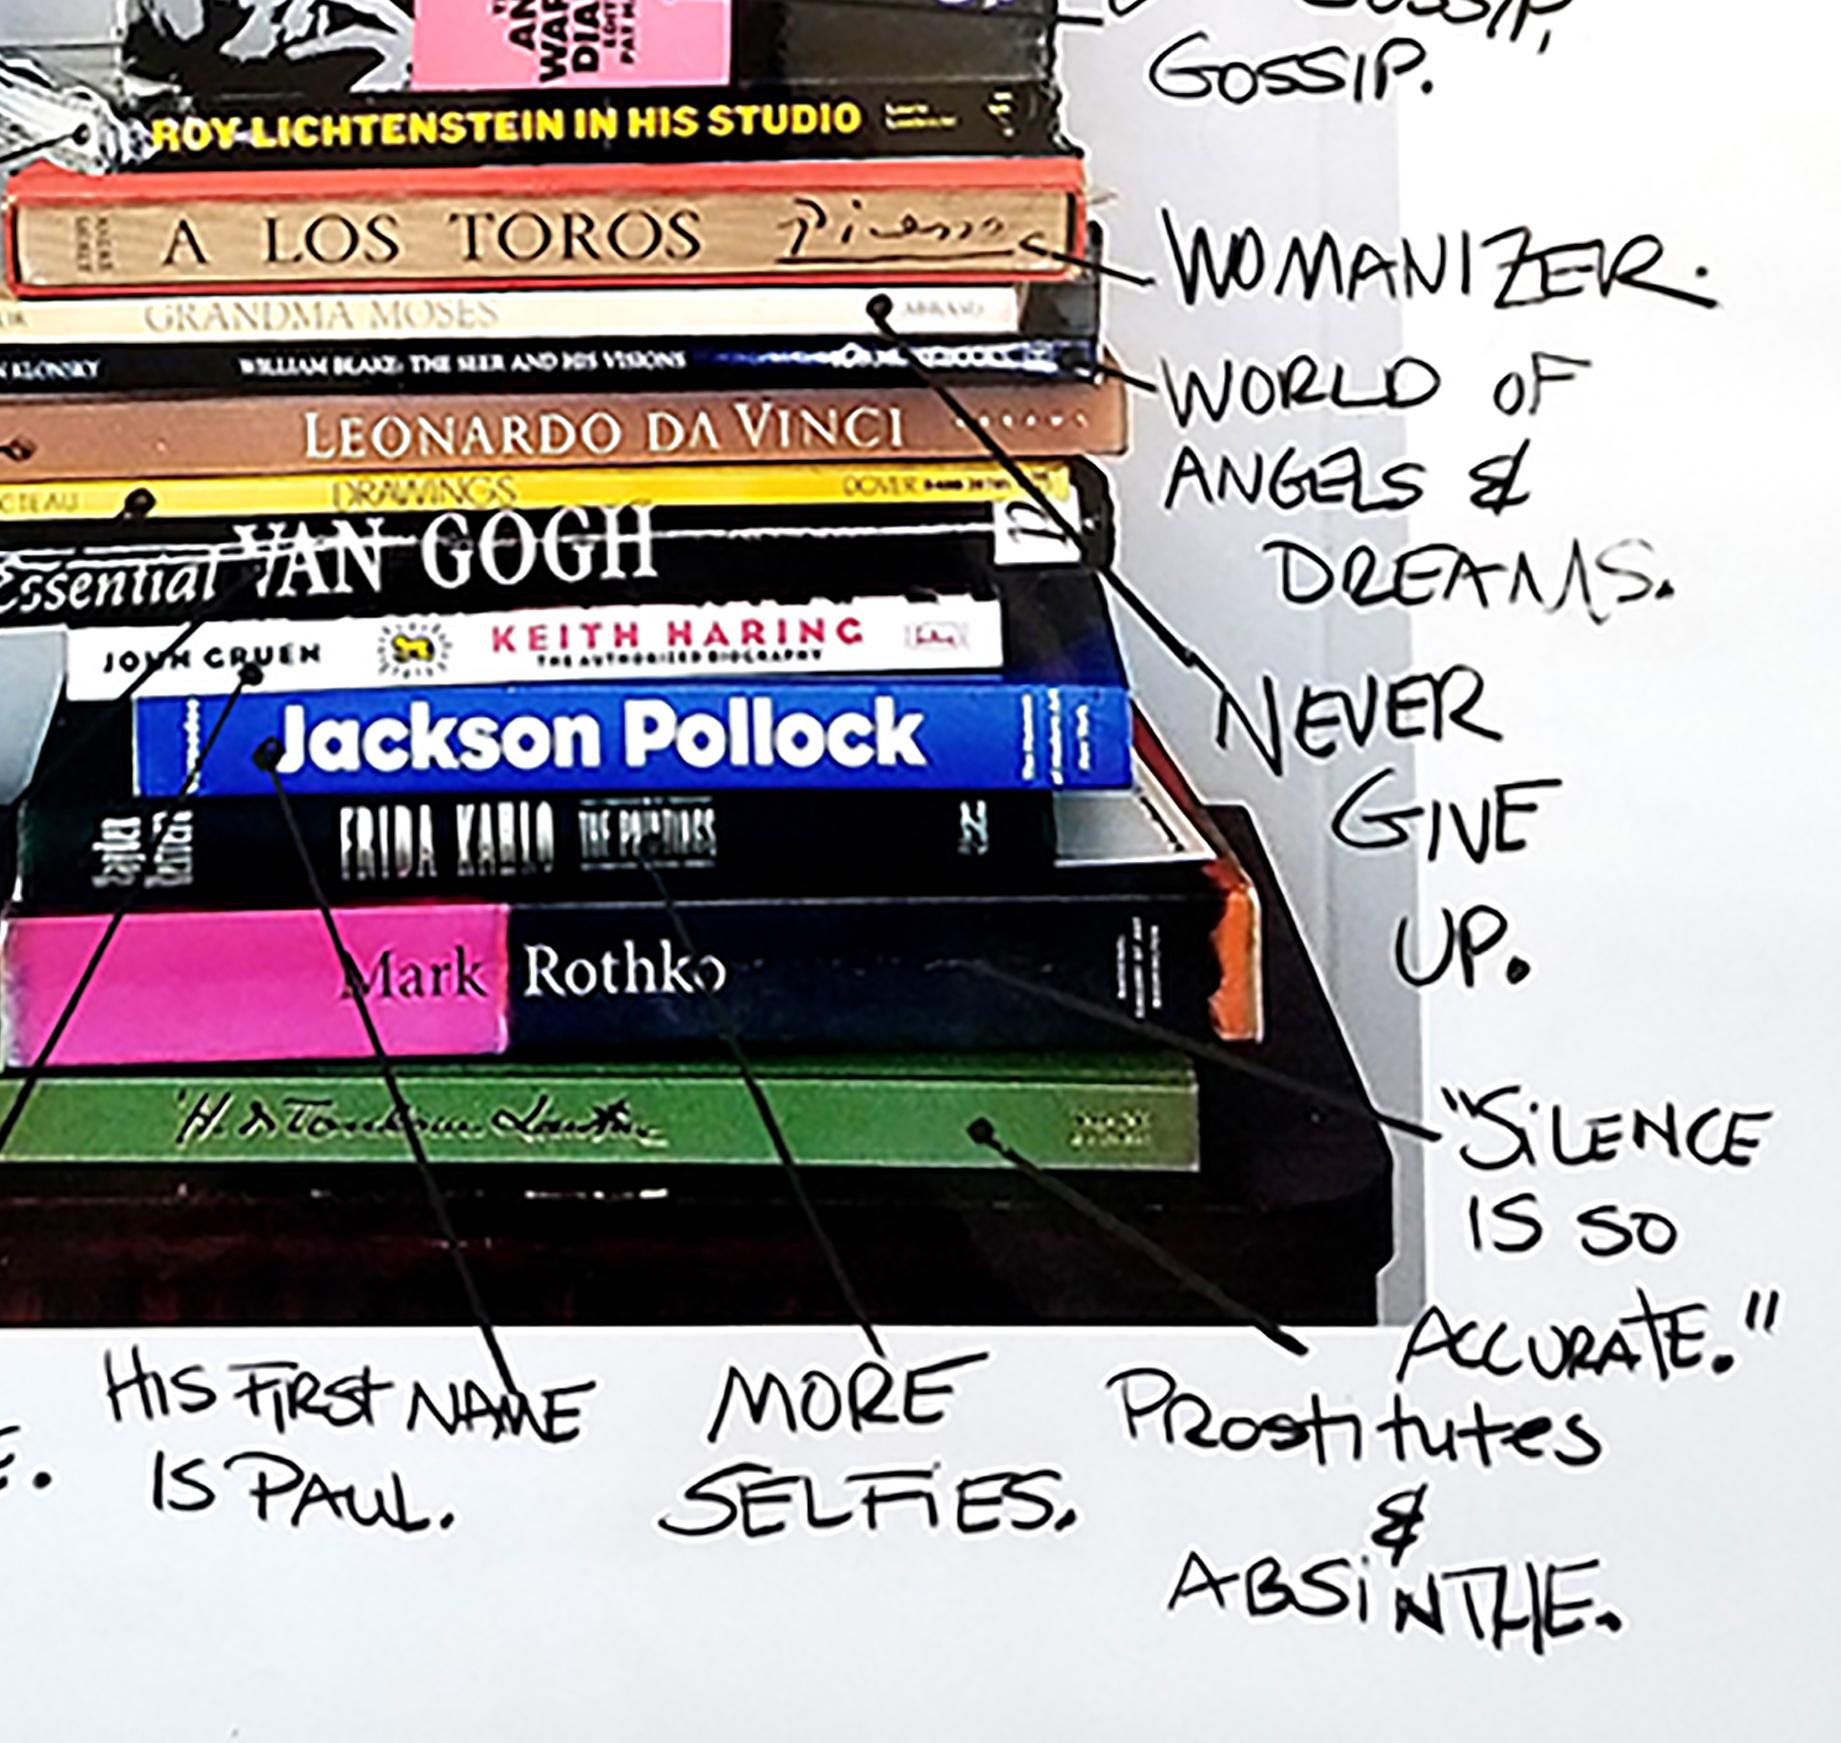 GOSSIP,
GOSSIP.
ROY LICHTENSTEIN IN HIS STUDIO
A LOS TOROS Picasso
WOMANIZER.
GRANDMA MOSES ABRAMS
KLONSKY WILLIAM BLAKE: THE SEER AND HIS VISIONS
WORLD OF
ANGELS &
DREAMS.
LEONARDO DA VINCI
CTEAU DRAWINGS DOVER
Essential VAN GOGH
JOHN GRUEN KEITH HARING
THE AUTHORIZED BIOGRAPHY
NEVER
GIVE
UP.
Jackson Pollock
FRIDA KAHLO THE PAINTINGS
Mark Rothko
"SILENCE
IS SO
ACCURATE."
HIS FIRST NAME
IS PAUL.
MORE
SELFIES.
Prostitutes
&
ABSINTHE.